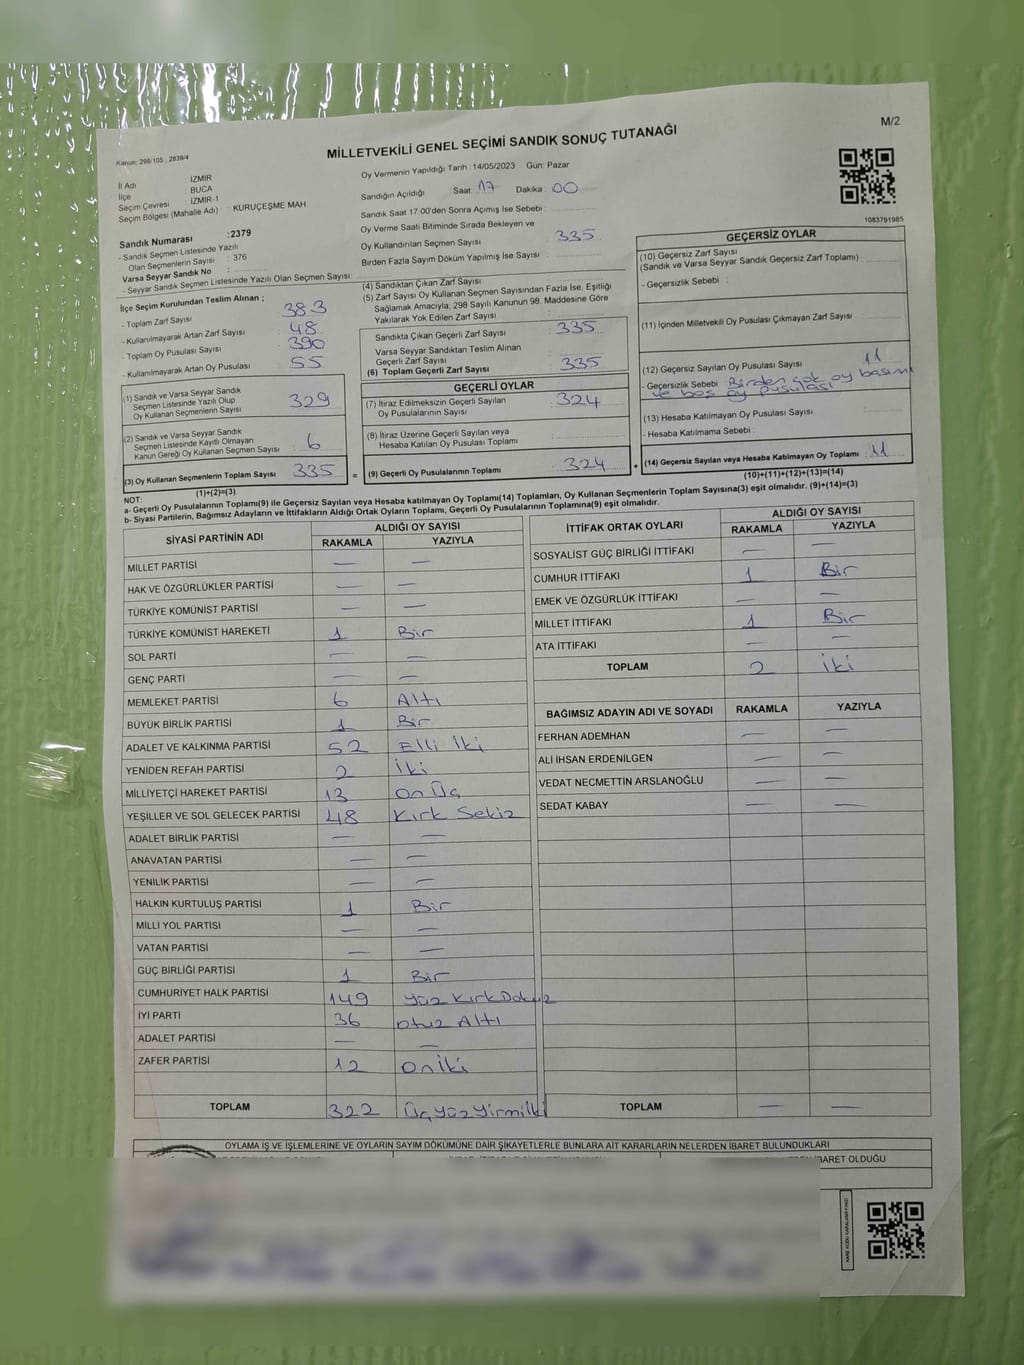 M/2
Kanun; 298/105 , 2839/4
MİLLETVEKİLİ GENEL SEÇİMİ SANDIK SONUÇ TUTANAĞI
İl Adı İZMİR
İlçe BUCA
Seçim Çevresi İZMİR-1
Seçim Bölgesi (Mahalle Adı) : KURUÇEŞME MAH.
Oy Vermenin Yapıldığı Tarih : 14/05/2023 Gün: Pazar
Sandığın Açıldığı Saat: 17 Dakika : 00
Sandık Saat 17.00'den Sonra Açımış İse Sebebi :
Oy Verme Saati Bitiminde Sırada Bekleyen ve
Oy Kullandırılan Seçmen Sayısı : 335
Birden Fazla Sayım Döküm Yapılmış İse Sayısı :
1083791985
Sandık Numarası :2379
- Sandık Seçmen Listesinde Yazılı
Olan Seçmenlerin Sayısı : 376
Varsa Seyyar Sandık No :
- Seyyar Sandık Seçmen Listesinde Yazılı Olan Seçmen Sayısı :
İlçe Seçim Kurulundan Teslim Alınan ;
- Toplam Zarf Sayısı : 383
- Kullanılmayarak Artan Zarf Sayısı : 48
- Toplam Oy Pusulası Sayısı : 390
- Kullanılmayarak Artan Oy Pusulası : 55
(1) Sandık ve Varsa Seyyar Sandık
Seçmen Listesinde Yazılı Olup
Oy Kullanan Seçmenlerin Sayısı : 329
(2) Sandık ve Varsa Seyyar Sandık
Seçmen Listesinde Kayıtlı Olmayan
Kanun Gereği Oy Kullanan Seçmen Sayısı : 6
(3) Oy Kullanan Seçmenlerin Toplam Sayısı : 335
(1)+(2)=(3)
(4) Sandıktan Çıkan Zarf Sayısı :
(5) Zarf Sayısı Oy Kullanan Seçmen Sayısından Fazla İse, Eşitliği
Sağlamak Amacıyla, 298 Sayılı Kanunun 98. Maddesine Göre
Yakılarak Yok Edilen Zarf Sayısı :
Sandıkta Çıkan Geçerli Zarf Sayısı : 335
Varsa Seyyar Sandıktan Teslim Alınan
Geçerli Zarf Sayısı :
(6) Toplam Geçerli Zarf Sayısı : 335
GEÇERLİ OYLAR
(7) İtiraz Edilmeksizin Geçerli Sayılan
Oy Pusulalarının Sayısı : 324
(8) İtiraz Üzerine Geçerli Sayılan veya
Hesaba Katılan Oy Pusulası Toplamı :
= (9) Geçerli Oy Pusulalarının Toplamı : 324 +
GEÇERSİZ OYLAR
(10) Geçersiz Zarf Sayısı
(Sandık ve Varsa Seyyar Sandık Geçersiz Zarf Toplamı) :
- Geçersizlik Sebebi :
(11) İçinden Milletvekili Oy Pusulası Çıkmayan Zarf Sayısı :
(12) Geçersiz Sayılan Oy Pusulası Sayısı : 11
- Geçersizlik Sebebi : Birden çok oy basımı
ve boş oy pusulası
(13) Hesaba Katılmayan Oy Pusulası Sayısı :
- Hesaba Katılmama Sebebi :
(14) Geçersiz Sayılan veya Hesaba Katılmayan Oy Toplamı : 11
(10)+(11)+(12)+(13)=(14)
NOT:
a- Geçerli Oy Pusulalarının Toplamı(9) ile Geçersiz Sayılan veya Hesaba katılmayan Oy Toplamı(14) Toplamları, Oy Kullanan Seçmenlerin Toplam Sayısına(3) eşit olmalıdır. (9)+(14)=(3)
b- Siyasi Partilerin, Bağımsız Adayların ve İttifakların Aldığı Ortak Oyların Toplamı, Geçerli Oy Pusulalarının Toplamına(9) eşit olmalıdır.
SİYASİ PARTİNİN ADI ALDIĞI OY SAYISI
RAKAMLA YAZIYLA
MİLLET PARTİSİ — —
HAK VE ÖZGÜRLÜKLER PARTİSİ — —
TÜRKİYE KOMÜNİST PARTİSİ — —
TÜRKİYE KOMÜNİST HAREKETİ 1 Bir
SOL PARTİ — —
GENÇ PARTİ — —
MEMLEKET PARTİSİ 6 Altı
BÜYÜK BİRLİK PARTİSİ 1 Bir
ADALET VE KALKINMA PARTİSİ 52 Elli iki
YENİDEN REFAH PARTİSİ 2 İki
MİLLİYETÇİ HAREKET PARTİSİ 13 On Üç
YEŞİLLER VE SOL GELECEK PARTİSİ 48 Kırk Sekiz
ADALET BİRLİK PARTİSİ — —
ANAVATAN PARTİSİ — —
YENİLİK PARTİSİ — —
HALKIN KURTULUŞ PARTİSİ 1 Bir
MİLLİ YOL PARTİSİ — —
VATAN PARTİSİ — —
GÜÇ BİRLİĞİ PARTİSİ 1 Bir
CUMHURİYET HALK PARTİSİ 149 Yüz Kırk Dokuz
İYİ PARTİ 36 Otuz Altı
ADALET PARTİSİ — —
ZAFER PARTİSİ 12 On İki
TOPLAM 322 Üç yüz Yirmi İki
İTTİFAK ORTAK OYLARI ALDIĞI OY SAYISI
RAKAMLA YAZIYLA
SOSYALİST GÜÇ BİRLİĞİ İTTİFAKI — —
CUMHUR İTTİFAKI 1 Bir
EMEK VE ÖZGÜRLÜK İTTİFAKI — —
MİLLET İTTİFAKI 1 Bir
ATA İTTİFAKI — —
TOPLAM 2 iki
BAĞIMSIZ ADAYIN ADI VE SOYADI RAKAMLA YAZIYLA
FERHAN ADEMHAN — —
ALİ İHSAN ERDENİLGEN — —
VEDAT NECMETTİN ARSLANOĞLU — —
SEDAT KABAY — —
TOPLAM — —
OYLAMA İŞ VE İŞLEMLERİNE VE OYLARIN SAYIM DÖKÜMÜNE DAİR ŞİKAYETLERLE BUNLARA AİT KARARLARIN NELERDEN İBARET BULUNDUKLARI
İBARET OLDUĞU